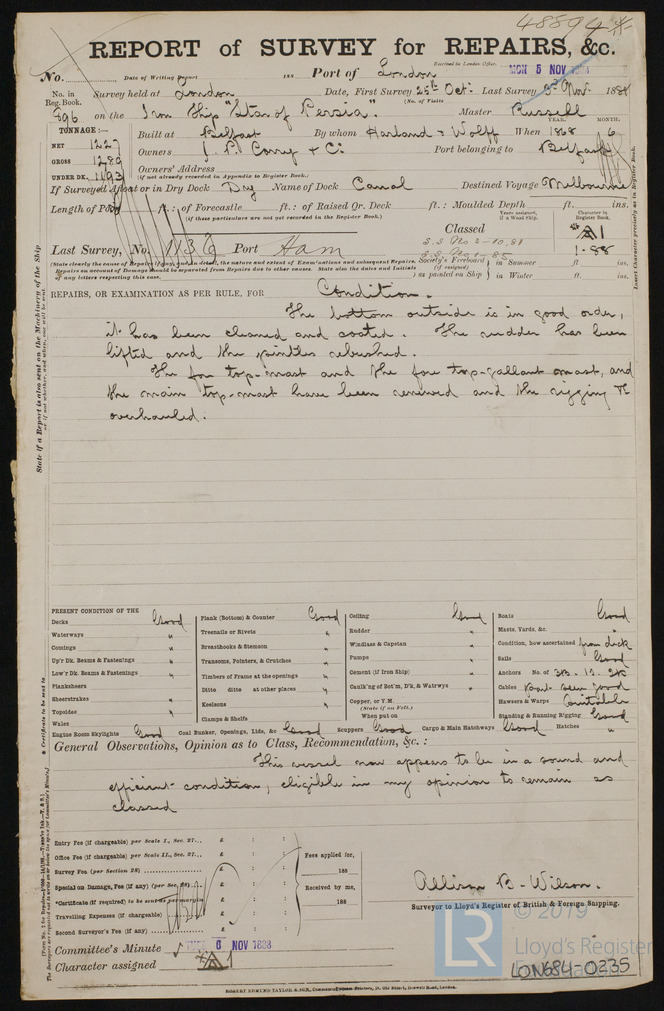 48894
REPORT of SURVEY for REPAIRS, &c.
No. Date of Writing Report 188 Port of London Received in London Office, MON 5 NOV 1888
No. in Reg. Book. Survey held at London Date, First Survey 25th Oct. Last Survey 3rd Nov. 1888
(No. of Visits
896 on the Iron Ship "Star of Persia." Master Russell
TONNAGE:—
NET 1227
GROSS 1289
UNDER DK. 1193
YEAR. MONTH.
Built at Belfast By whom Harland & Wolff When 1868 6
Owners J. P. Corry & Co Port belonging to Belfast
Owners' Address
(if not already recorded in Appendix to Register Book.)
If Surveyed Afloat or in Dry Dock Dry Name of Dock Canal Destined Voyage Melbourne
Length of Poop ft.: of Forecastle ft.: of Raised Qr. Deck ft.: Moulded Depth ft. ins.
(if these particulars are not yet recorded in the Register Book.)
Classed
Years assigned, if a Wood Ship.
Character in Register Book.
A1
1.88
Last Survey, No. 1136 Port Ham
S.S. No 2-10.81
Society's Freeboard (if assigned) as painted on Ship in Summer ft ins.
in Winter ft. ins.
(State clearly the cause of Repairs (if any, and in detail, the nature and extent of Examinations and subsequent Repairs.
Repairs on account of Damage should be separated from Repairs due to other causes. State also the dates and Initials of any letters respecting this case.
REPAIRS, OR EXAMINATION AS PER RULE, FOR Condition.
The bottom outside is in good order,
it has been cleaned and coated. The rudder has been
lifted and the pintles rebushed.
The fore top-mast and the fore top-gallant mast, and
the main top-mast have been renewed and the rigging &c
overhauled.
State if a Report is also sent on the Machinery of the Ship
Insert Character precisely as in Register Book.
PRESENT CONDITION OF THE
Decks Good
Waterways "
Comings "
Up'r Dk. Beams & Fastenings "
Low'r Dk. Beams & Fastenings "
Planksheers
Sheerstrakes "
Topsides "
Wales
Plank (Bottom) & Counter Good
Treenails or Rivets "
Breasthooks & Stemson "
Transoms, Pointers, & Crutches "
Timbers of Frame at the openings "
Ditto ditto at other places "
Keelsons "
Clamps & Shelfs
Ceiling Good
Rudder "
Windlass & Capstan "
Pumps "
Cement (if Iron Ship) "
Caulk'ng of Bot'm, D'k, & Watrwys "
Copper, or Y.M
(State if on Felt.)
When put on
Boats Good
Masts, Yards, &c. "
Condition, how ascertained from deck
Sails Good
Anchors No. of 3B. 1S. 2K
Cables part seen good
Hawsers & Warps Suitable
Standing & Running Rigging Good
Engine Room Skylights Good Coal Bunker, Openings, Lids, &c Good Scuppers Good Cargo & Main Hatchways Good Hatches "
General Observations, Opinion as to Class, Recommendation, &c. :
This vessel now appears to be in a sound and
efficient condition, eligible in my opinion to remain as
classed
Entry Fee (if chargeable) per Scale I., Sec. 27... £ : :
Office Fee (if chargeable) per Scale II., Sec. 27... £ : :
Survey Fee (per Section 28) £ : :
Special on Damage, Fee (if any) (per Sec. 28) £ : :
*Certificate (if required) to be sent as per margin
Travelling Expenses (if chargeable) £ : :
Second Surveyor's Fee (if any) £ : :
Fees applied for,
188
Received by me,
188
Allison B. Wilson.
Surveyor to Lloyd's Register of British & Foreign Shipping.
Committee's Minute TUES 6 NOV 1888
Character assigned A1
LR
© 2019
Lloyd's Register
Foundation
LON684-0235
ROBERT EDMUND TAYLOR & SON, Commercial Steam Printers, 19, Old Street, Goswell Road, London.
* Certificate to be sent to